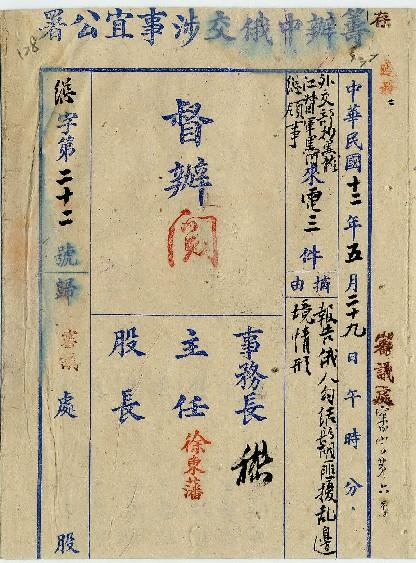 署公宜事涉交俄中辦籌
存
中華民國十二年五月二十九日午時分
審議處
外交部抄黑龍
江督軍馬
來電三件
摘由
報告俄人勾結鬍匪擾乱邊
境情形
督辦
閱
事務長
主任徐東藩
股長
字第二十二號歸審議處股